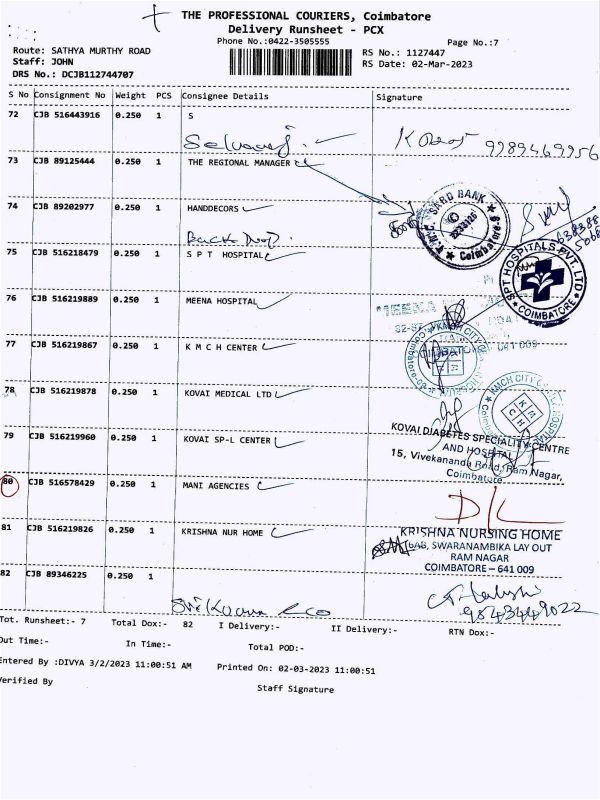 THE PROFESSIONAL COURIERS, Coimbatore
Delivery Runsheet - PCX
Phone No.:0422-3505555
Page No.:7
Route: SATHYA MURTHY ROAD
RS No.: 1127447
Staff: JOHN
RS Date: 02-Mar-2023
DRS No.: DCJB112744707
S No Consignment No Weight PCS Consignee Details Signature
72 CJB 516443916 0.250 1 S
Selvaraj 9989469956
73 CJB 89125444 0.250 1 THE REGIONAL MANAGER
BANK
Coimbatore
74 CJB 89202977 0.250 1 HANDDECORS
Back
75 CJB 516218479 0.250 1 S P T HOSPITAL
SPT HOSPITALS PVT. LTD
COIMBATORE
76 CJB 516219889 0.250 1 MEENA HOSPITAL
77 CJB 516219867 0.250 1 K M C H CENTER
KMCH CITY
641 009
78 CJB 516219878 0.250 1 KOVAI MEDICAL LTD
KMCH CITY
HOSPITAL
KMCH
79 CJB 516219960 0.250 1 KOVAI SP-L CENTER
KOVAI DIABETES SPECIALITY CENTRE
AND HOSPITAL
15, Vivekananda Road, Ram Nagar,
Coimbatore
80 CJB 516578429 0.250 1 MANI AGENCIES
D/L
81 CJB 516219826 0.250 1 KRISHNA NUR HOME
KRISHNA NURSING HOME
SWARANAMBIKA LAY OUT
RAM NAGAR
COIMBATORE – 641 009
82 CJB 89346225 0.250 1
9843449022
Tot. Runsheet:- 7 Total Dox:- 82 I Delivery:- II Delivery:- RTN Dox:-
Out Time:- In Time:- Total POD:-
Entered By :DIVYA 3/2/2023 11:00:51 AM Printed On: 02-03-2023 11:00:51
Verified By Staff Signature